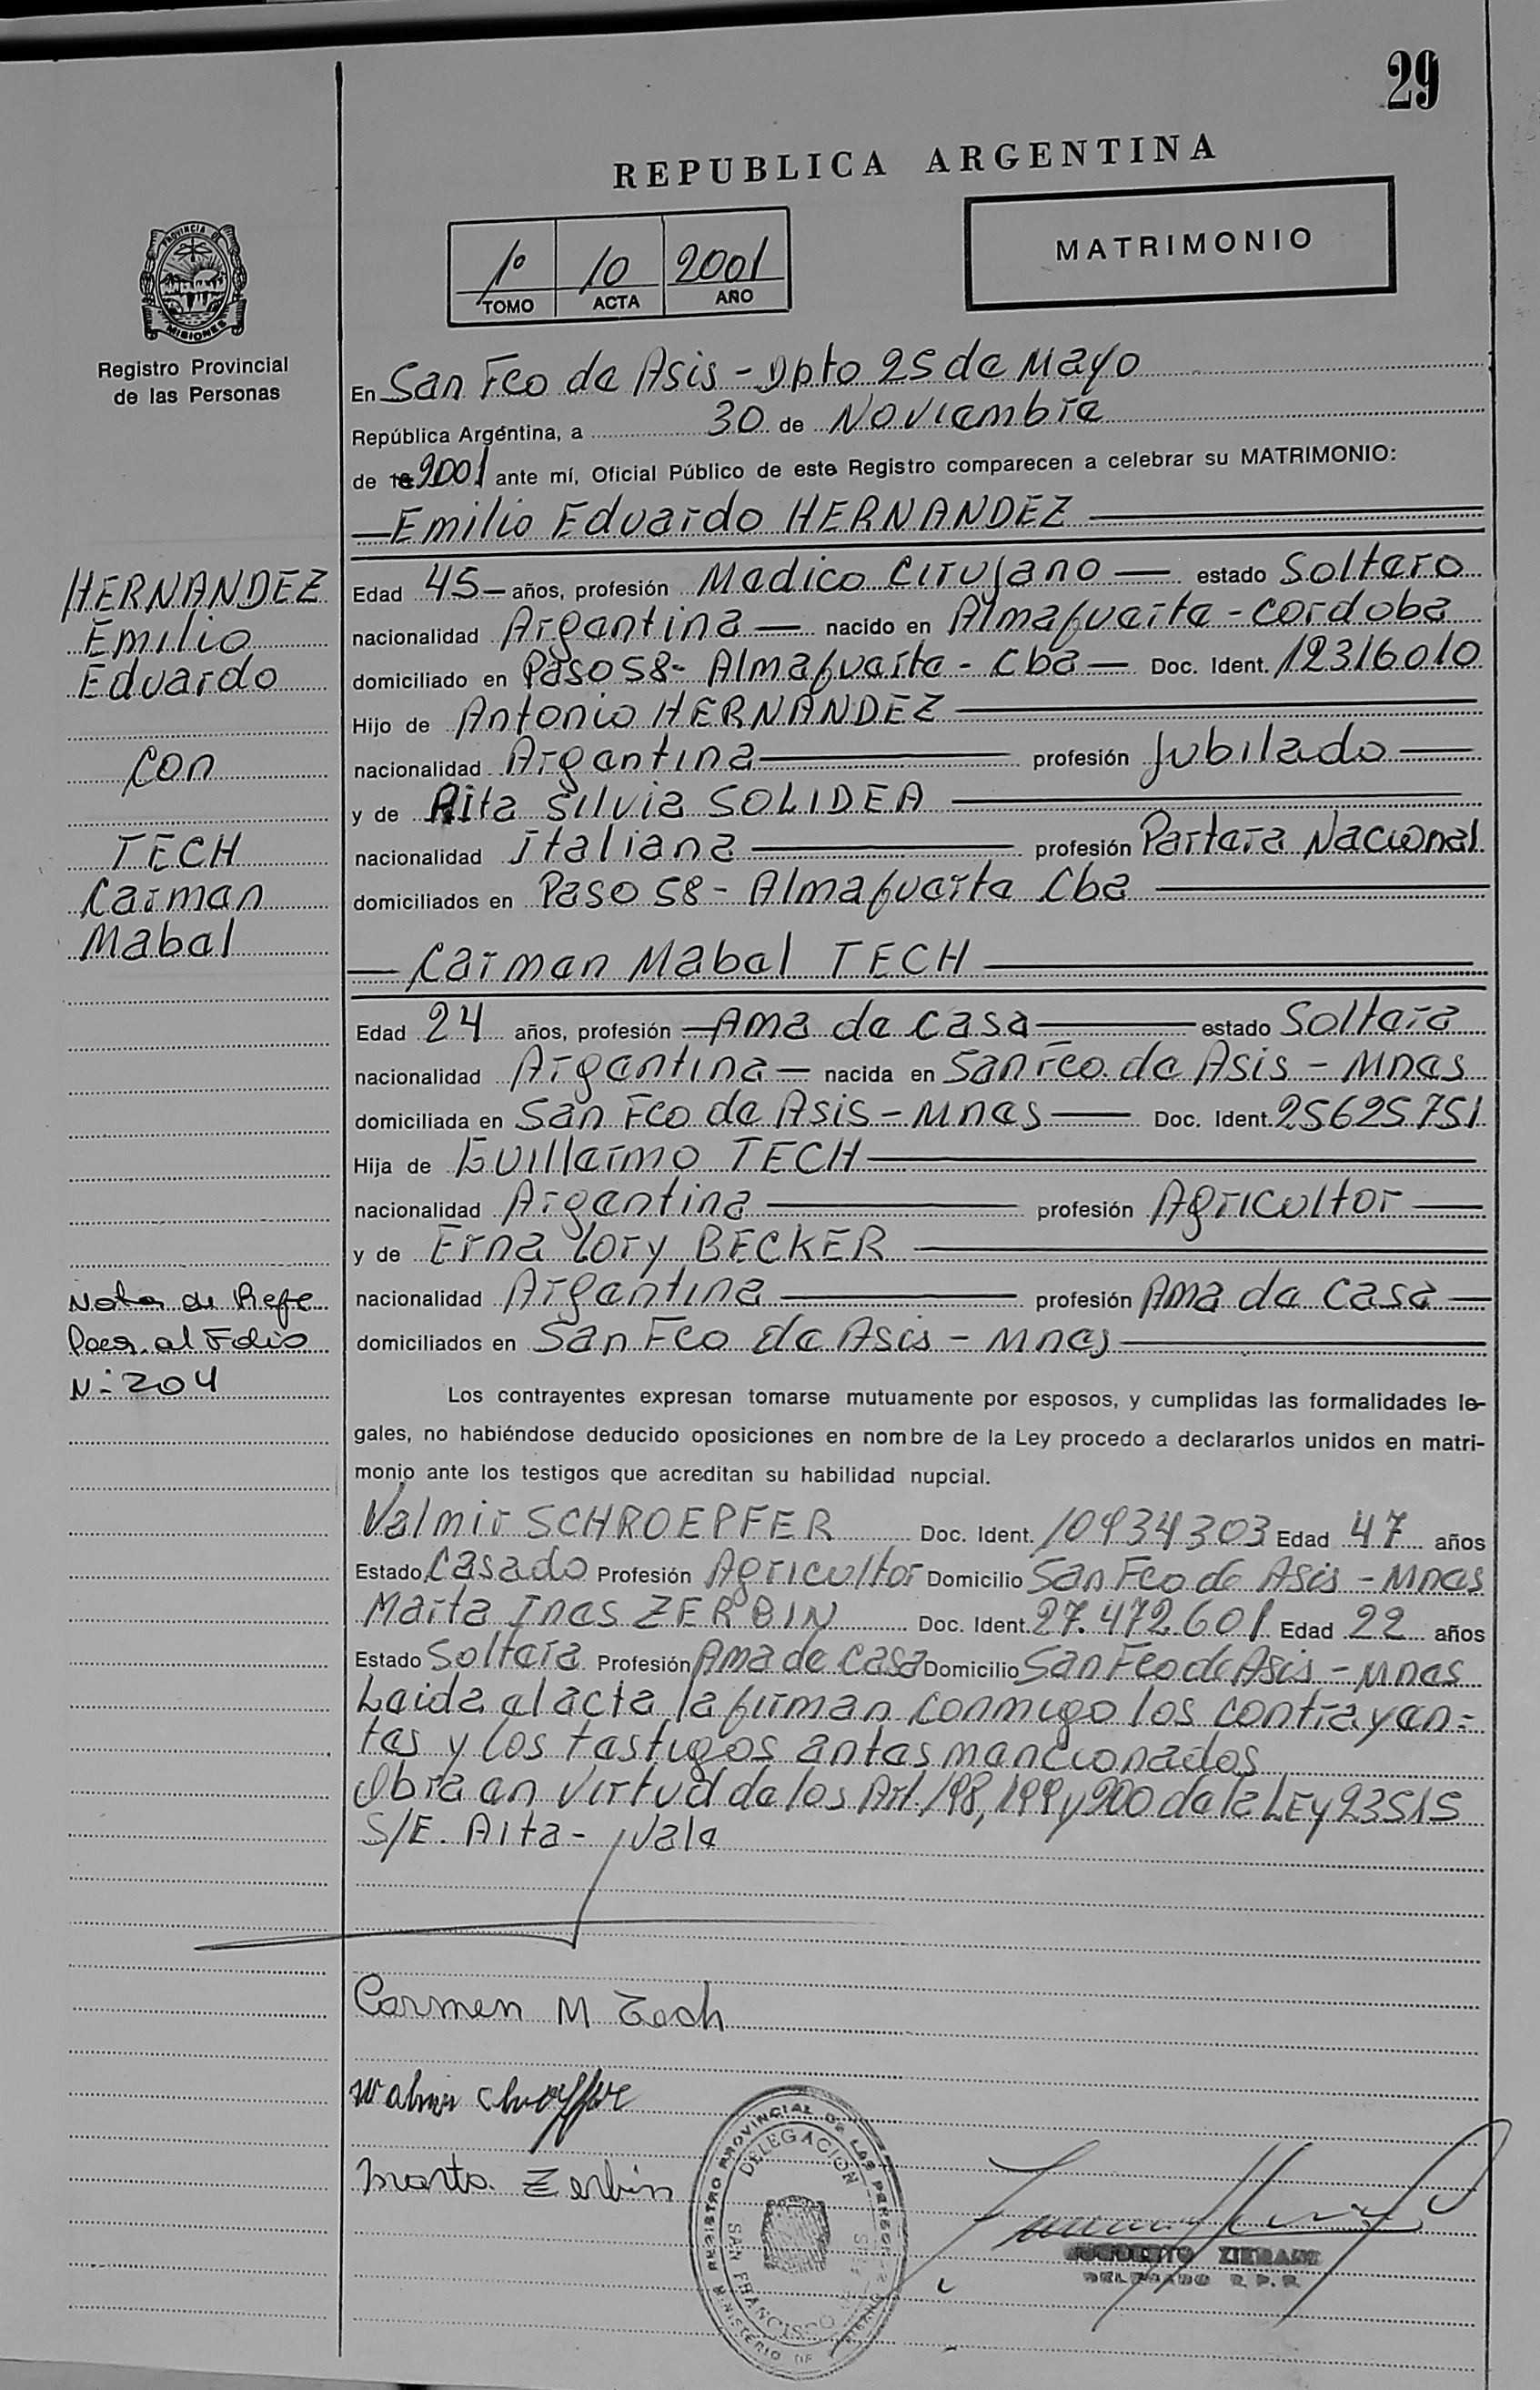 29
REPUBLICA ARGENTINA
PROVINCIA DE
MISIONES
Registro Provincial
de las Personas
1º 10 2001
TOMO ACTA AÑO
MATRIMONIO
En San Fco de Asis - Dpto 25 de Mayo
República Argentina, a 30 de Noviembre
de 2001 ante mí, Oficial Público de este Registro comparecen a celebrar su MATRIMONIO:
Emilio Eduardo HERNANDEZ
Edad 45 años, profesión Medico Cirujano estado Soltero
nacionalidad Argentina nacido en Almafuerte - cordoba
domiciliado en Paso 58 - Almafuerte - Cba Doc. Ident. 12316010
Hijo de Antonio HERNANDEZ
nacionalidad Argentina profesión Jubilado
y de Rita Silvia SOLIDEA
nacionalidad italiana profesión Partera Nacional
domiciliados en Paso 58 - Almafuerte Cba
Carmen Mabel TECH
Edad 24 años, profesión Ama de casa estado Soltera
nacionalidad Argentina nacida en San Fco. de Asis - Mnes
domiciliada en San Fco de Asis - Mnes Doc. Ident. 25625751
Hija de Guillermo TECH
nacionalidad Argentina profesión Agricultor
y de Erna Lory BECKER
nacionalidad Argentina profesión Ama de Casa
domiciliados en San Fco de Asis - Mnes
Los contrayentes expresan tomarse mutuamente por esposos, y cumplidas las formalidades le-
gales, no habiéndose deducido oposiciones en nombre de la Ley procedo a declararlos unidos en matri-
monio ante los testigos que acreditan su habilidad nupcial.
Valmir SCHROEPFER Doc. Ident. 10934303 Edad 47 años
Estado Casado Profesión Agricultor Domicilio San Fco de Asis - Mnes
Marta Ines ZERBIN Doc. Ident. 27.472.601 Edad 22 años
Estado Soltera Profesión Ama de Casa Domicilio San Fco de Asis - Mnes
Leida el acta la firman conmigo los contrayen=
tes y los testigos antes mencionados
Obra en virtud de los Art. 198, 199 y 200 de la LEY 23515
S/E. Rita - Vale
HERNANDEZ
Emilio
Eduardo
con
TECH
Carmen
Mabel
Nota de Refe
al Folio
N: 204
Carmen M Tech
Marta Zerbin
REGISTRO PROVINCIAL DE LAS PERSONAS
DELEGACION
SAN FRANCISCO
MINISTERIO DE GOBIERNO
DELEGADO R.P.P.